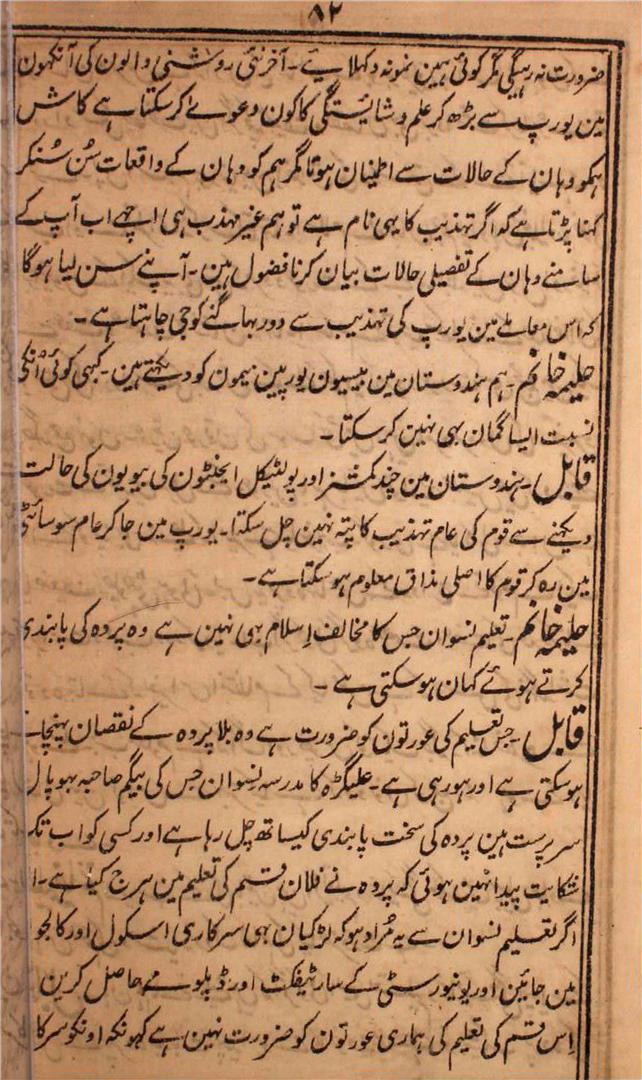 ۸۲
ضرورت نہ رہیگی مگر کوئی ہمین نمونہ دکھلایئے۔ آخر نئی روشنی والون کی آنکھون
مین یورپ سے بڑھ کر علم و شائستگی کا کون دعوے کر سکتا ہے کاش
ہمکو وہان کے حالات سے اطمینان ہوتا مگر ہم کو وہان کے واقعات سُن سُنکر
کہنا پڑتا ہے کہ اگر تہذیب کا یہی نام ہے تو ہم غیر مہذب ہی اچھے اب آپ کے
سامنے وہان کے تفصیلی حالات بیان کرنا فضول ہین۔ آپنے سن لیا ہوگا
کہ اس معاملے مین یورپ کی تہذیب سے دور بھاگنے کو جی چاہتا ہے۔
حلیمہ خانم۔ ہم ہندوستان مین بیسیون یورپین میمون کو دیکھتے ہین۔ کبھی کوئی انکی
نسبت ایسا گمان بھی نہین کر سکتا۔
قابل۔ ہندوستان مین چند کمشنر اور پولٹیکل ایجنٹون کی بیویون کی حالت
دیکھنے سے قوم کی عام تہذیب کا پتہ نہین چل سکتا۔ یورپ مین جا کر عام سوسائٹی
مین رہ کر قوم کا اصلی مذاق معلوم ہو سکتا ہے۔
حلیمہ خانم۔ تعلیم نسوان جس کا مخالف اِسلام بھی نہین ہے وہ پردہ کی پابندی
کرتے ہوئے کہان ہو سکتی ہے۔
قابل۔ جس تعلیم کی عورتون کو ضرورت ہے وہ بلا پردہ کے نقصان پہنچائے
ہو سکتی ہے اور ہو رہی ہے۔ علیگڑہ کا مدرسہ نِسوان جس کی بیگم صاحبہ بھوپال
سرپرست ہین پردہ کی سخت پابندی کیساتھ چل رہا ہے اور کسی کو اب تک
شکایت پیدا نہین ہوئی کہ پردہ نے فلان قسم کی تعلیم مین ہرج کیا ہے۔
اگر تعلیم نسوان سے یہ مُراد ہو کہ لڑکیان بھی سرکاری اسکول اور کالجو
مین جائین اور یونیورسٹی کے سارٹیفکٹ اور ڈپلومے حاصل کرین
اِس قسم کی تعلیم کی ہماری عورتون کو ضرورت نہین ہے کیونکہ اونکو سرکا